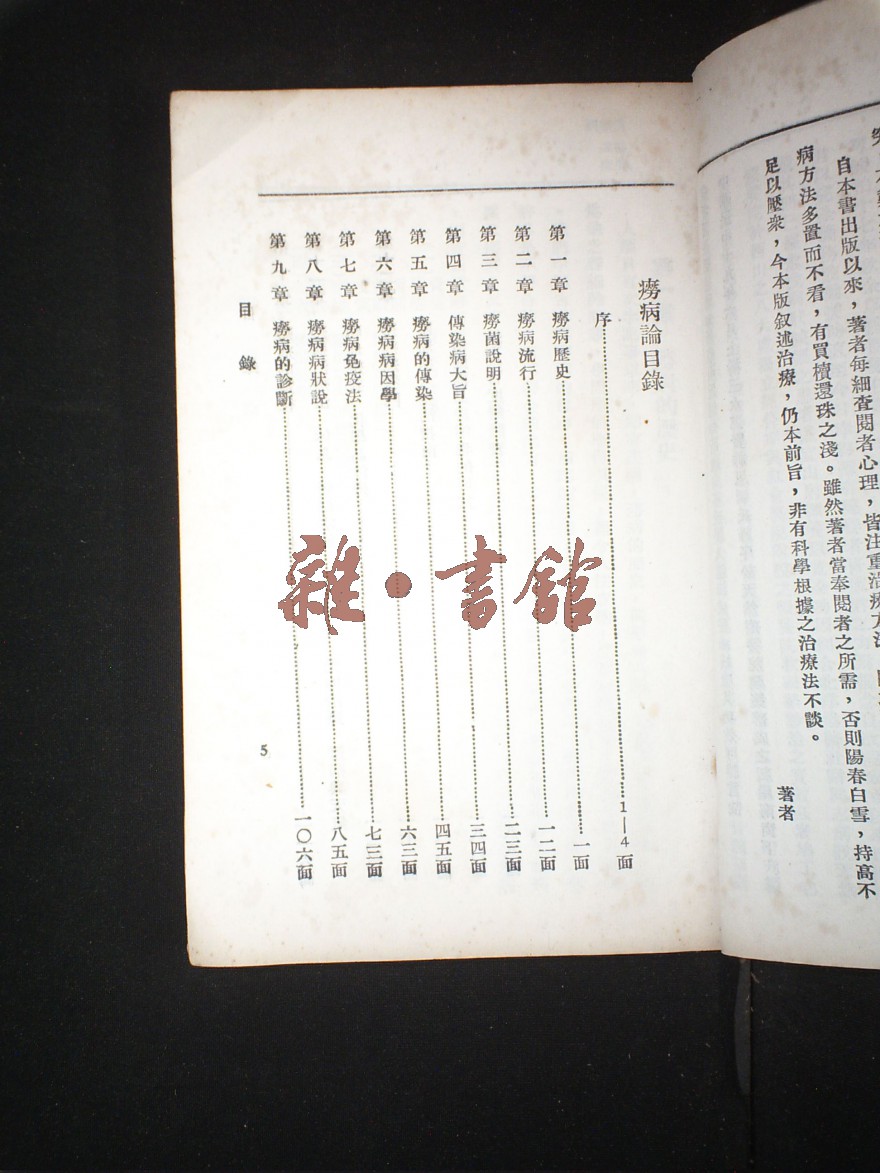 自本書出版以來，著者每細查閱者心理，皆注重治療方法
病方法多置而不看，有買櫝還珠之淺。雖然著者當奉閱者之所需，否則陽春白雪，持高不
足以壓衆，今本版叙述治療，仍本前旨，非有科學根據之治療法不談。
著者
癆病論目錄
序 1—4面
第一章 癆病歷史 一面
第二章 癆病流行 一二面
第三章 癆菌說明 二三面
第四章 傳染病大旨 三四面
第五章 癆病的傳染 四五面
第六章 癆病病因學 六三面
第七章 癆病免疫法 七三面
第八章 癆病病狀說 八五面
第九章 癆病的診斷 一〇六面
目錄
5
雜·書館